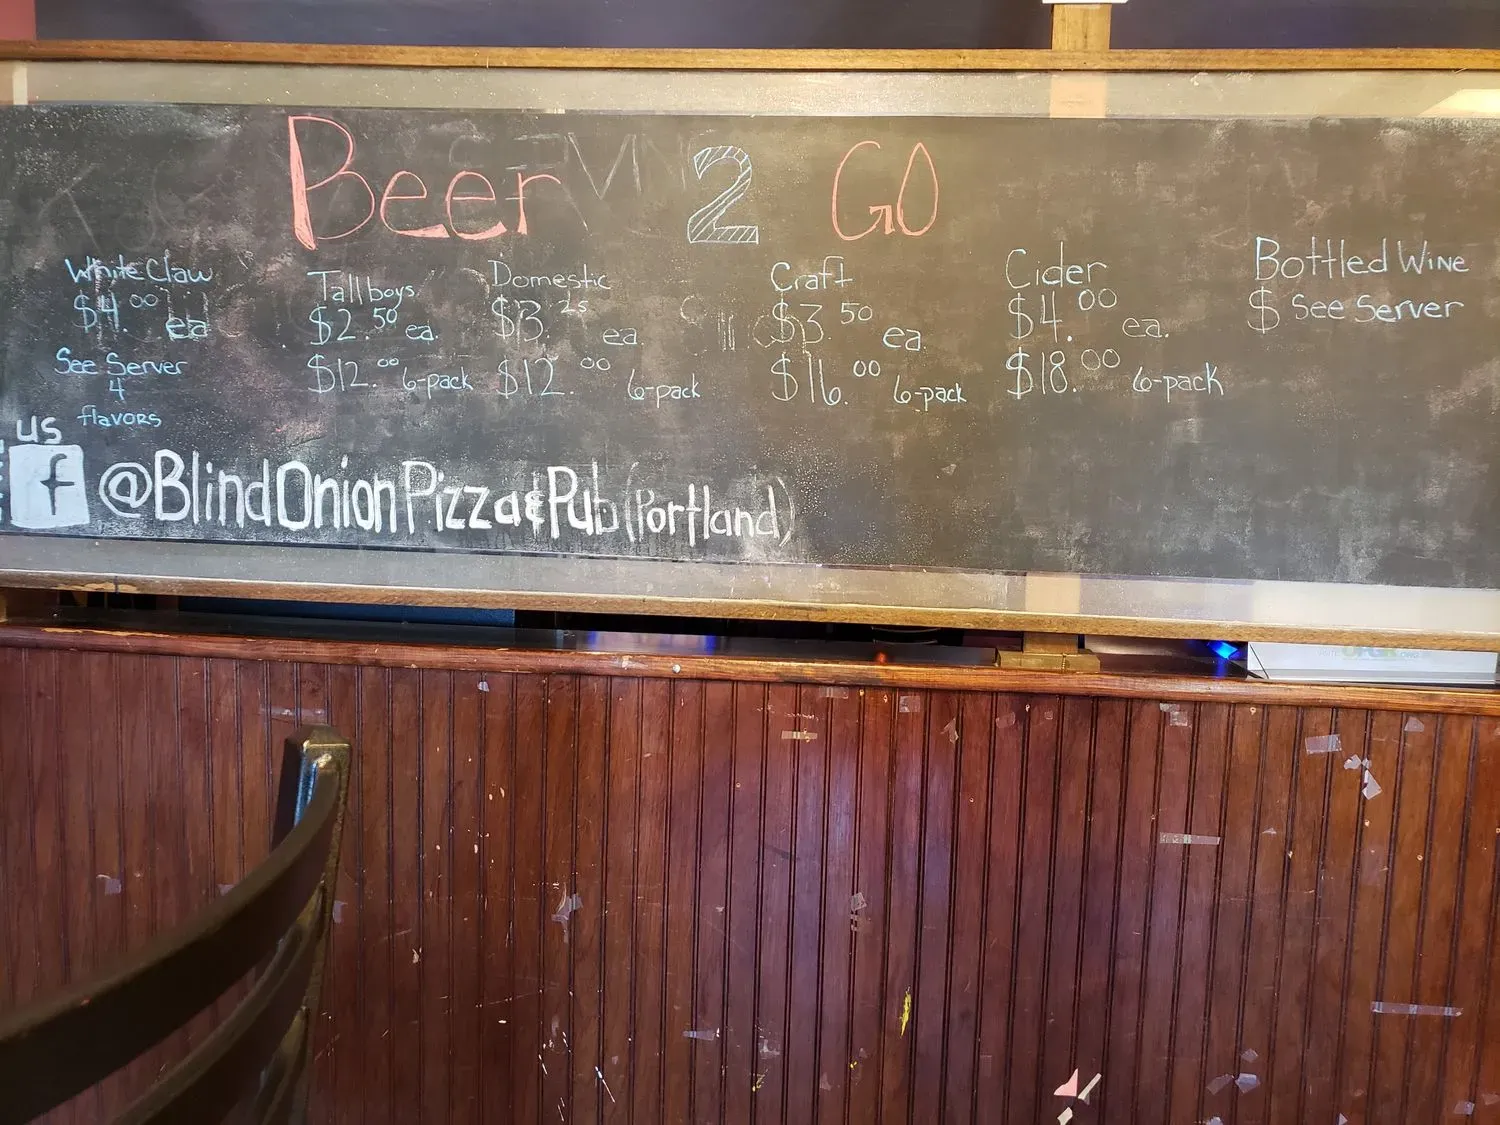 Beer 2 GO
White Claw
$4.00 ea
See Server
4
flavors
Tall boys
$2.50 ea.
$12.00 6-pack
Domestic
$3.25 ea
$12.00 6-pack
Craft
$3.50 ea
$16.00 6-pack
Cider
$4.00 ea.
$18.00 6-pack
Bottled Wine
$ See Server
us
f @BlindOnionPizza&Pub (Portland)